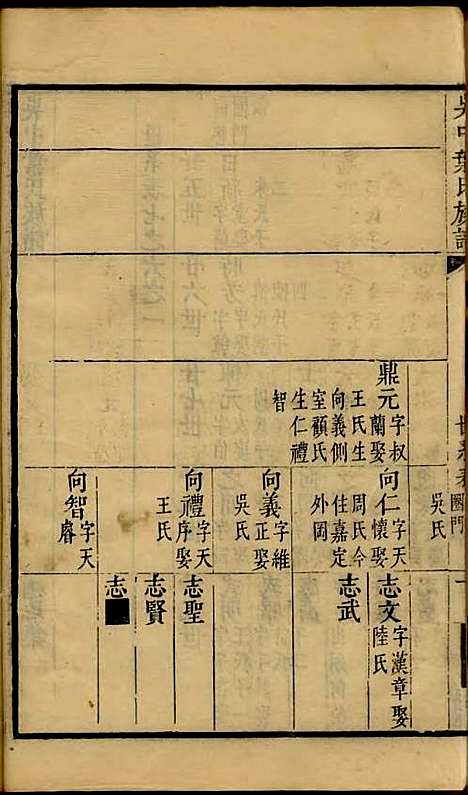 吳中葉氏族譜
世系表
吳氏
鼎元字叔
蘭娶
王氏生
向義側
室顧氏
生仁禮
智
向仁字天
懷娶
周氏今
住嘉定
外岡
向義字維
正娶
吳氏
向禮字天
序娶
王氏
向智字天
睿
志文字漢章娶
陸氏
志武
志聖
志賢
志